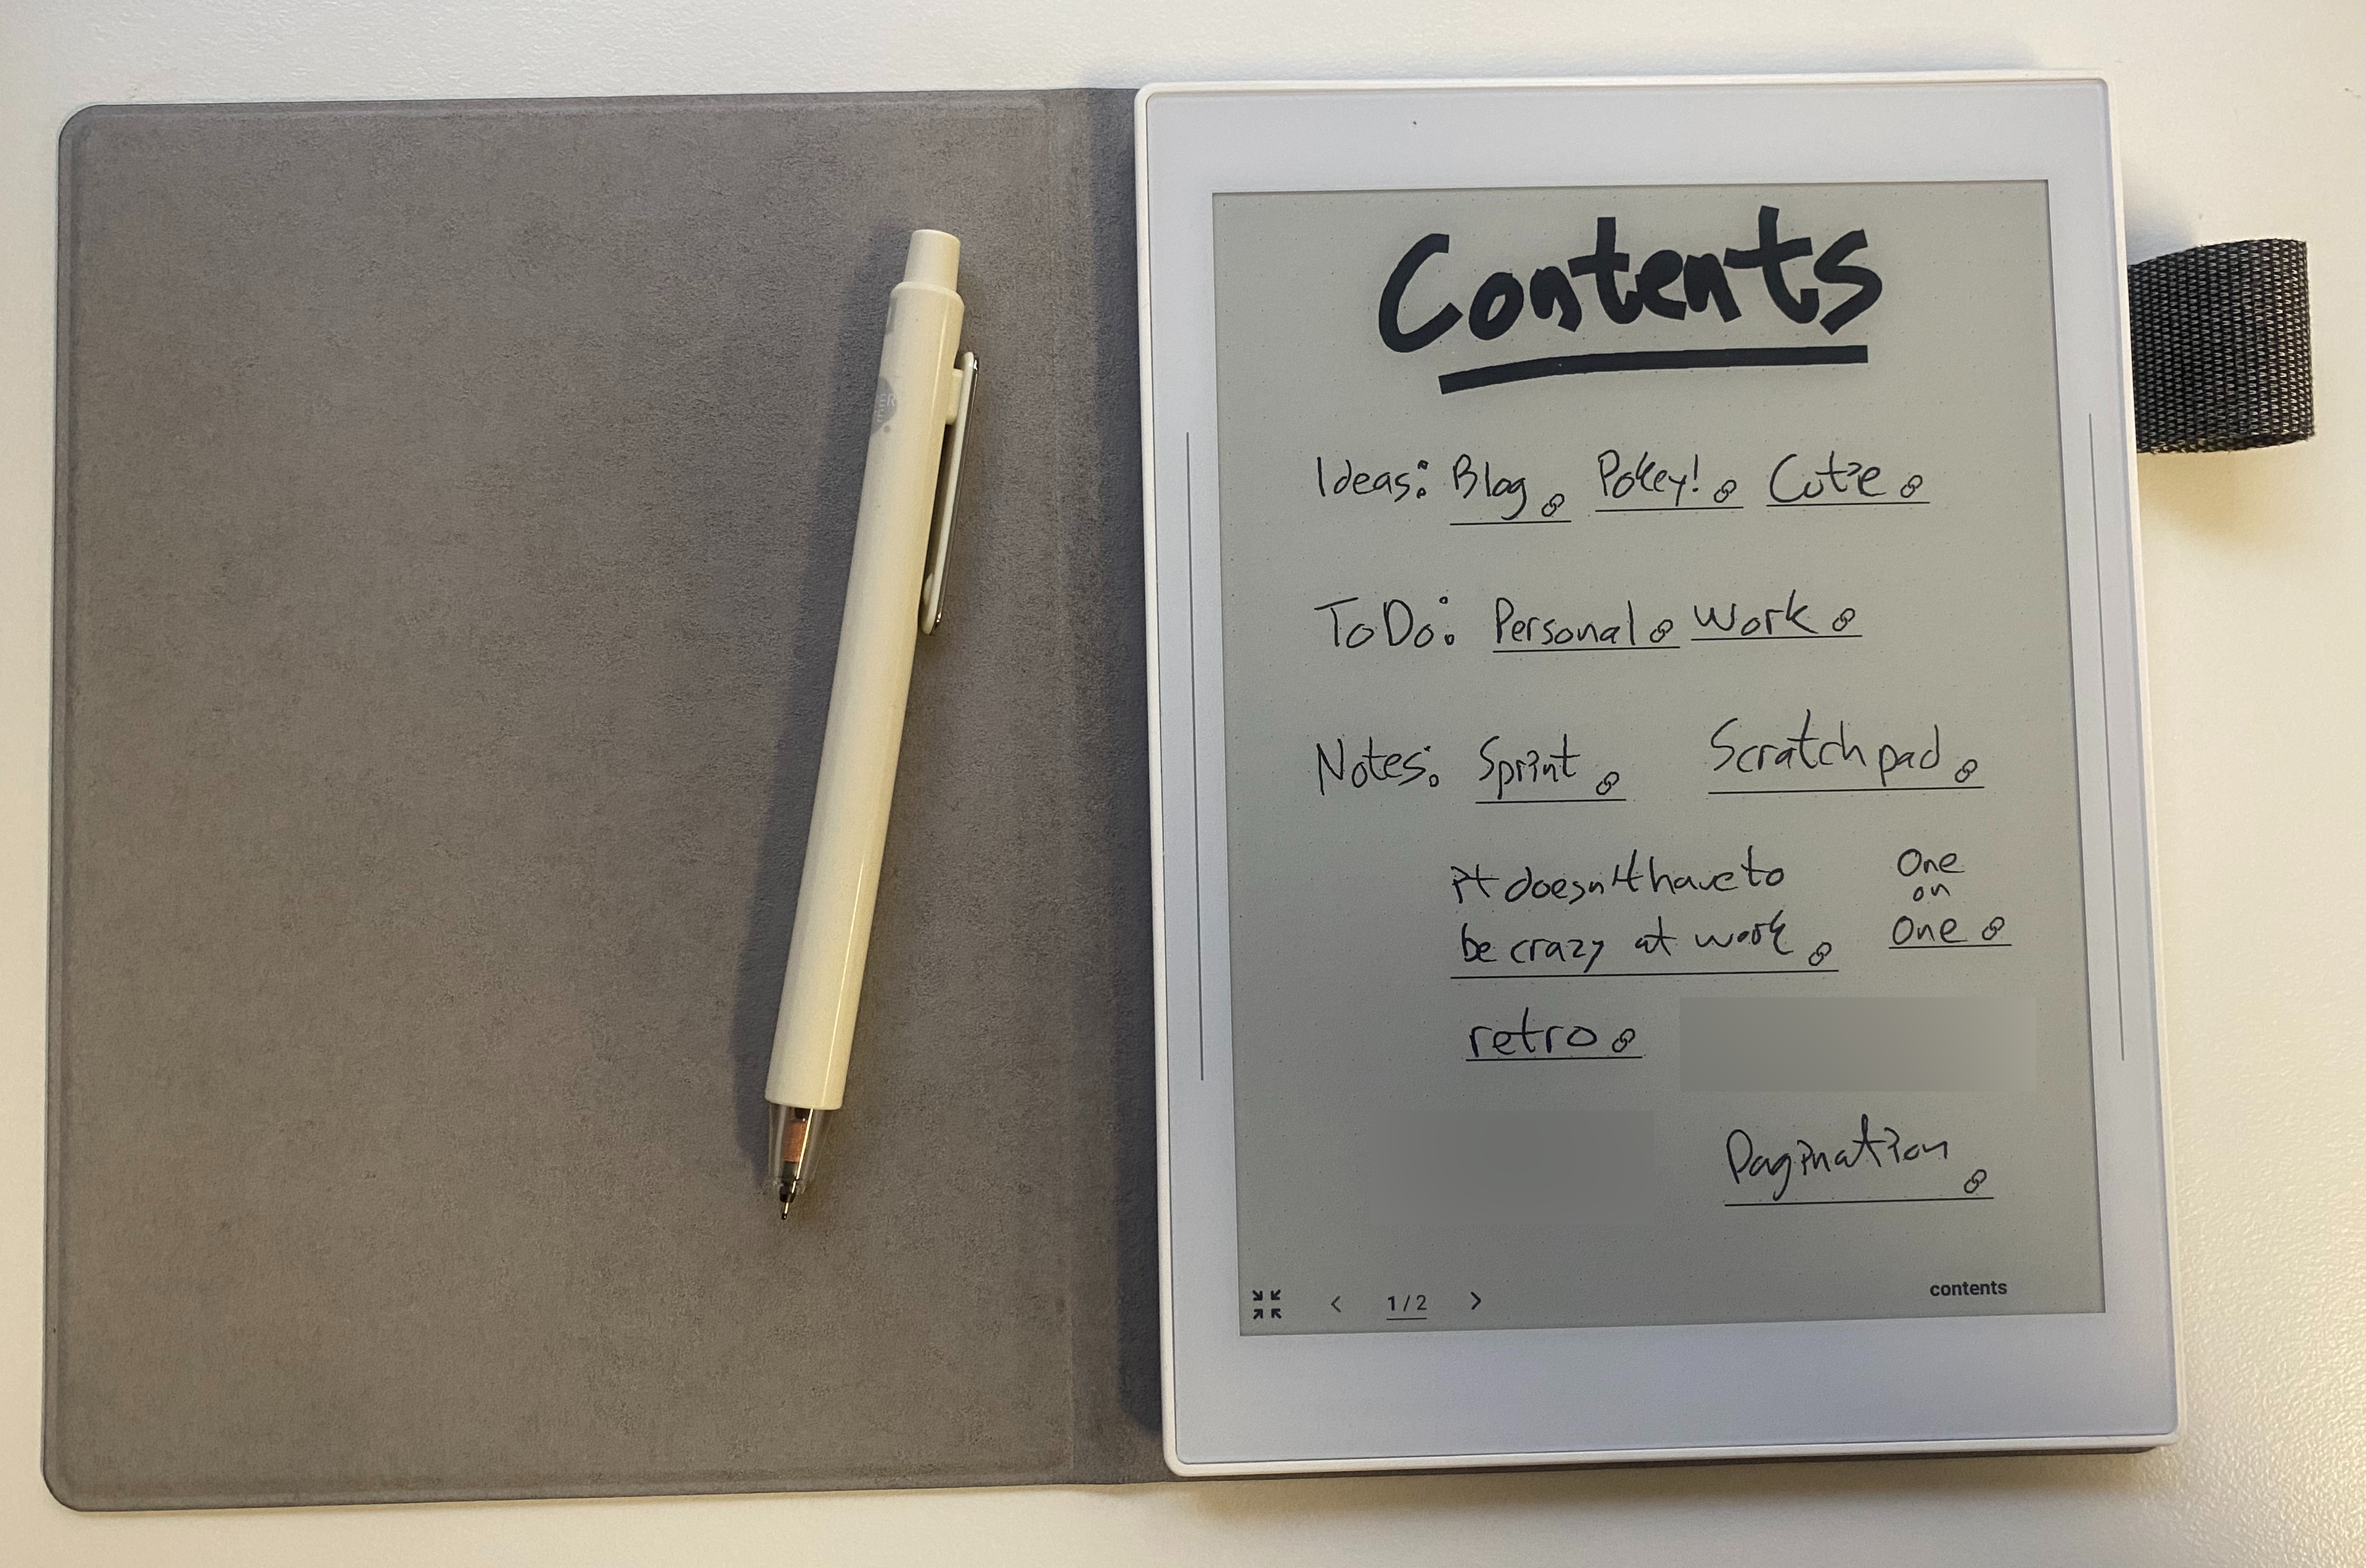 Contents
Ideas: Blog Pokey! Cutie
ToDo: Personal Work
Notes: Sprint Scratchpad
it doesn't have to
be crazy at work
One
on
One
retro
Pagination
1 / 2
contents